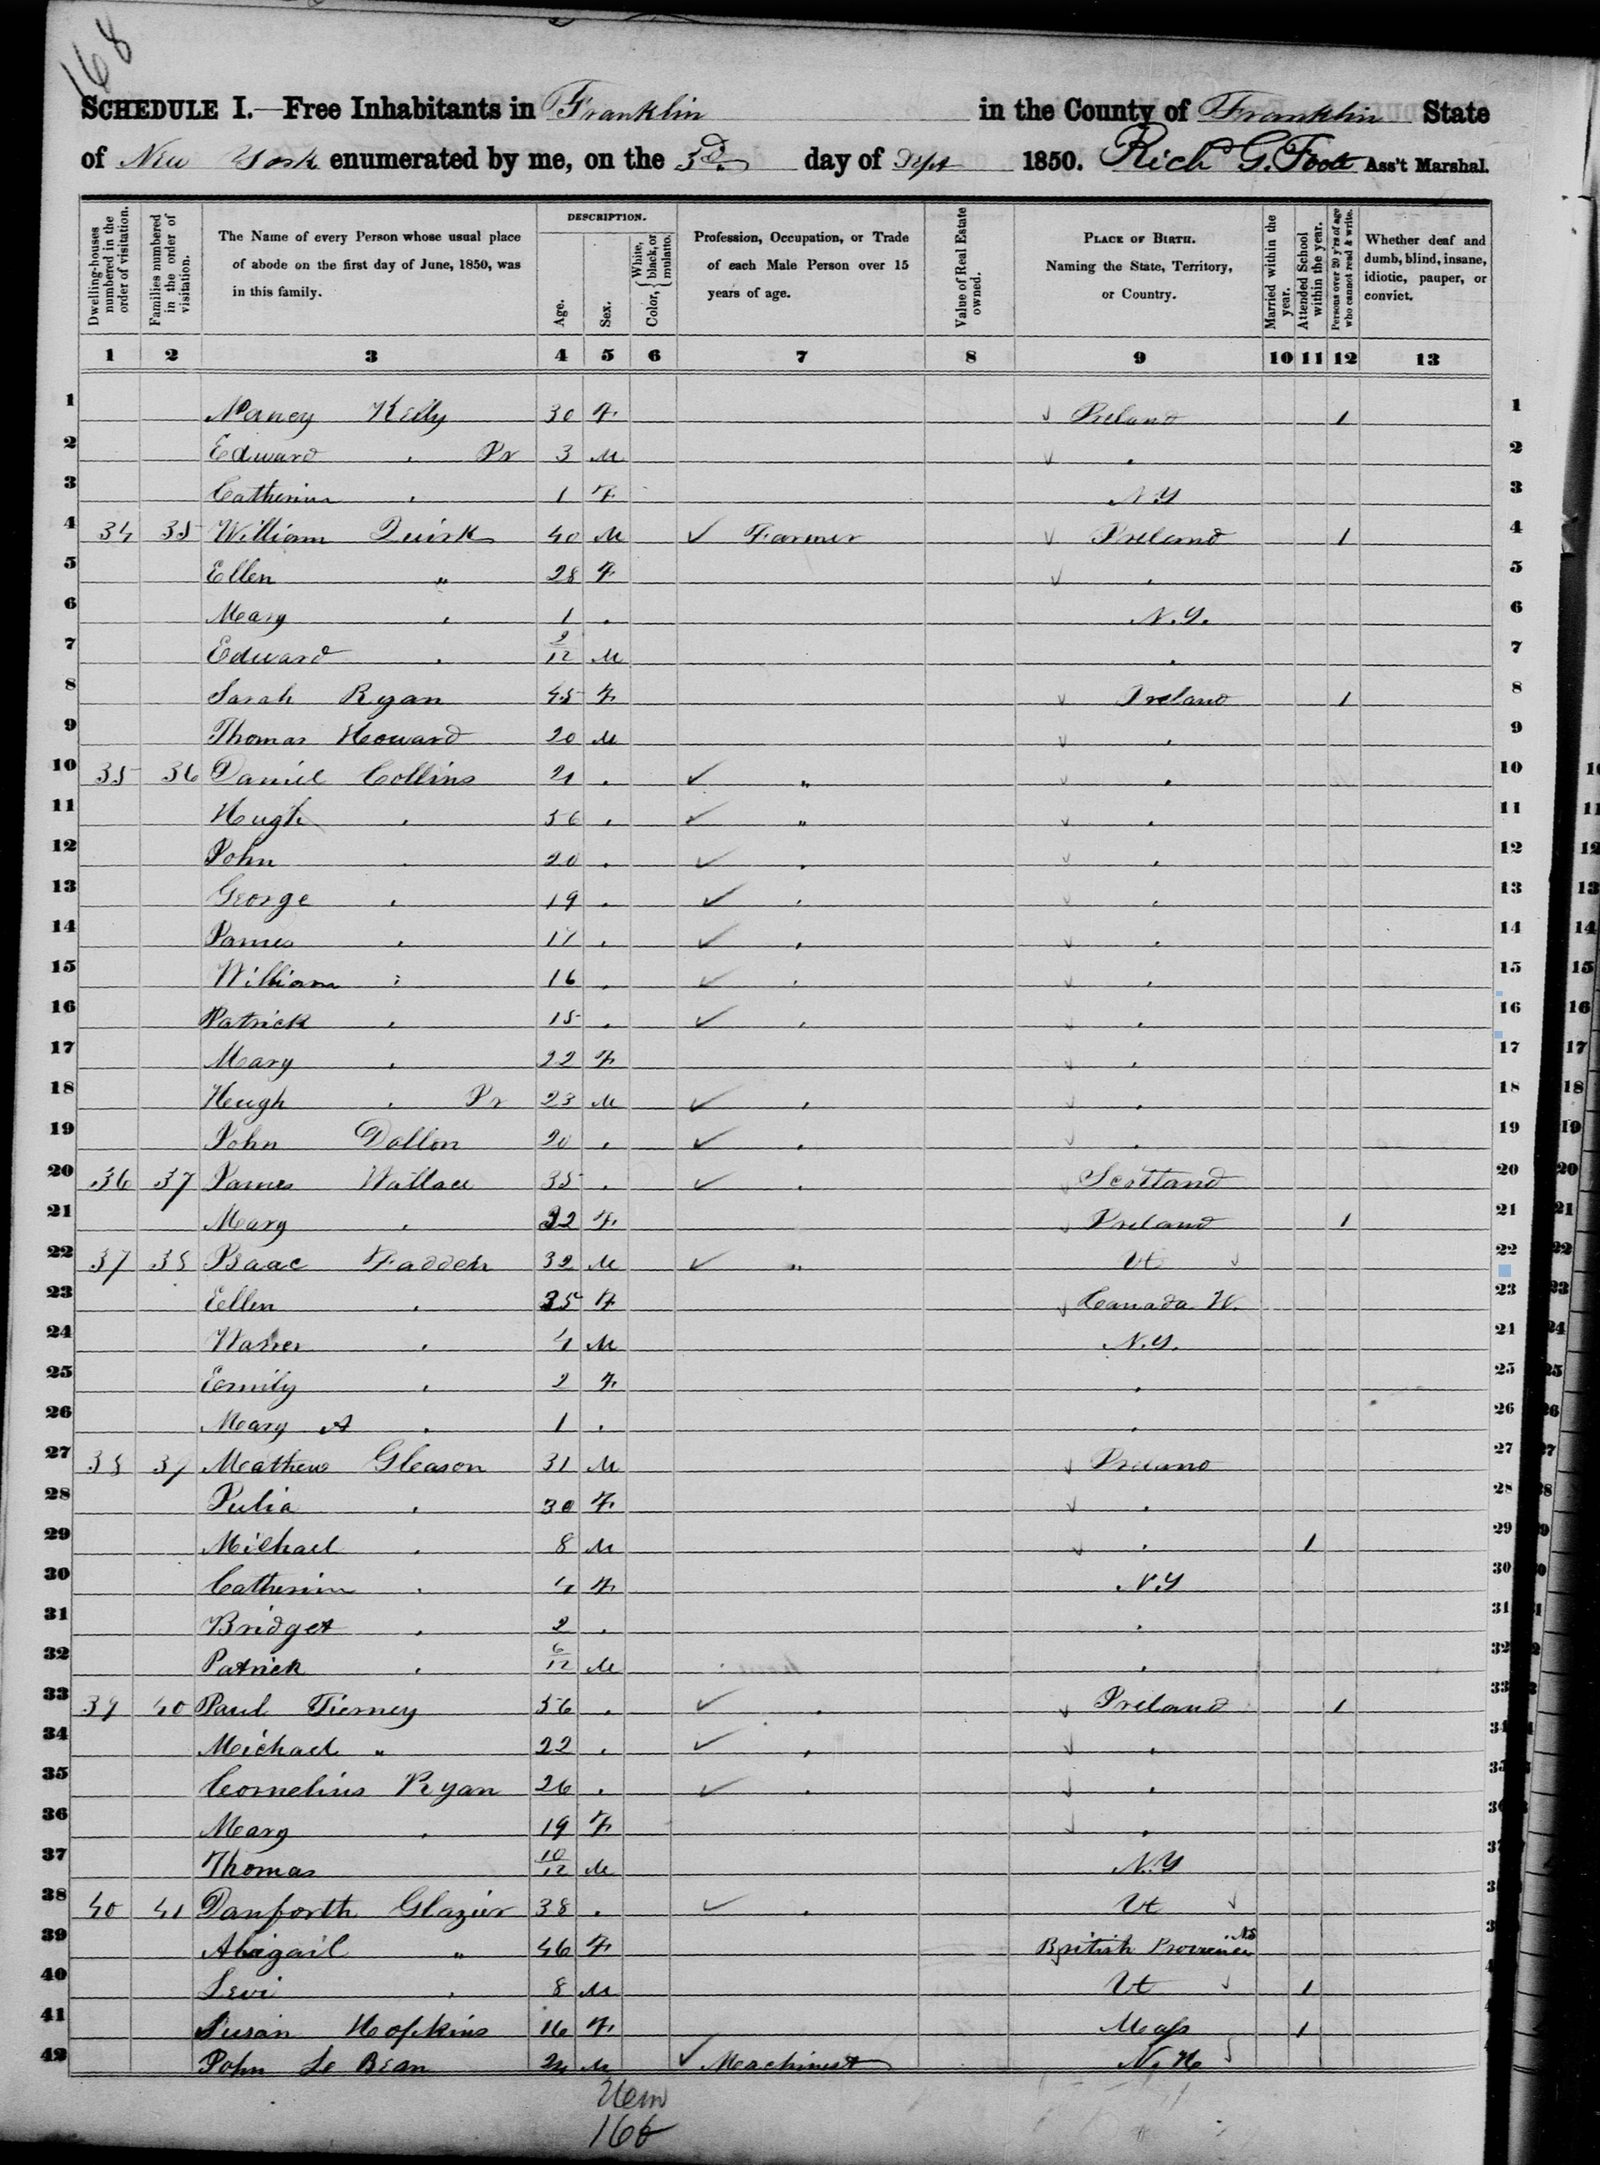 168
SCHEDULE I.—Free Inhabitants in Franklin in the County of Franklin State
of New York enumerated by me, on the 3d day of Sept 1850. Rich G. Foot Ass't Marshal.
Dwelling-houses numbered in the order of visitation.
Families numbered in the order of visitation.
The Name of every Person whose usual place of abode on the first day of June, 1850, was in this family.
DESCRIPTION.
Age.
Sex.
Color, { White, black, or mulatto.
Profession, Occupation, or Trade of each Male Person over 15 years of age.
Value of Real Estate owned.
PLACE OF BIRTH.
Naming the State, Territory, or Country.
Married within the year.
Attended School within the year.
Persons over 20 y'rs of age who cannot read & write.
Whether deaf and dumb, blind, insane, idiotic, pauper, or convict.
1 2 3 4 5 6 7 8 9 10 11 12 13
1 Nancy Kelly 30 F Ireland 1 1
2 Edward . Jr 3 M . 2
3 Catherine . 1 F N.Y 3
4 34 35 William Quirk 40 M ✓ Farmer Ireland 1 4
5 Ellen " 28 F . 5
6 Mary . 1 . N.Y. 6
7 Edward . 2/12 M . 7
8 Sarah Ryan 45 F Ireland 1 8
9 Thomas Howard 20 M . 9
10 35 36 Daniel Collins 21 . ✓ " . 10
11 Hugh . 56 . ✓ " . 11
12 John . 20 . ✓ . . 12
13 George . 19 . ✓ . . 13
14 James . 17 . ✓ . . 14
15 William . 16 . ✓ . . 15
16 Patrick . 15 . ✓ . . 16
17 Mary . 22 F . 17
18 Hugh . Jr 23 M ✓ . . 18
19 John Dollon 20 . ✓ . . 19
20 36 37 James Wallace 35 . ✓ . Scotland 20
21 Mary . 32 F Ireland 1 21
22 37 38 Isaac Fadden 32 M ✓ " Vt 22
23 Ellen . 35 F Canada W. 23
24 Warren . 4 M N.Y. 24
25 Emily . 2 F . 25
26 Mary A . 1 . . 26
27 38 39 Mathew Gleason 31 M Ireland 27
28 Julia . 30 F . 28
29 Michael . 8 M . 1 29
30 Catherine . 4 F N.Y 30
31 Bridget . 2 . . 31
32 Patrick . 6/12 M . 32
33 39 40 Paul Tierney 56 . ✓ . Ireland 1 33
34 Michael " 22 . ✓ . . 34
35 Cornelius Ryan 26 . ✓ . . 35
36 Mary . 19 F .
37 Thomas 10/12 M N.Y
38 40 41 Danforth Glazier 38 . ✓ . Vt
39 Abigail " 46 F British Provinces NS
40 Levi . 8 M Vt 1
41 Susan Hopkins 16 F Mass 1
42 John Le Bean 24 M ✓ Machinest N. H